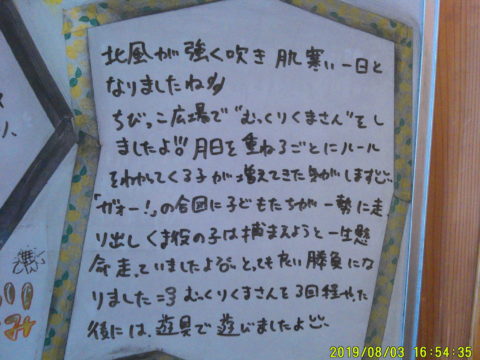 北風が強く吹き肌寒い一日と
なりましたね
ちびっこ広場で"むっくりくまさん"をし
ましたよ!! 月日を重ねるごとにルール
をわかってくる子が増えてきた気がします
「ガオー!」の合図に子どもたちが一勢に走
り出しくま役の子は捕まえようと一生懸
命走っていましたよ とっても良い勝負にな
りました =3 むっくりくまさんを3回程やった
後には、遊具で遊びましたよ
2019/08/03 16:54:35